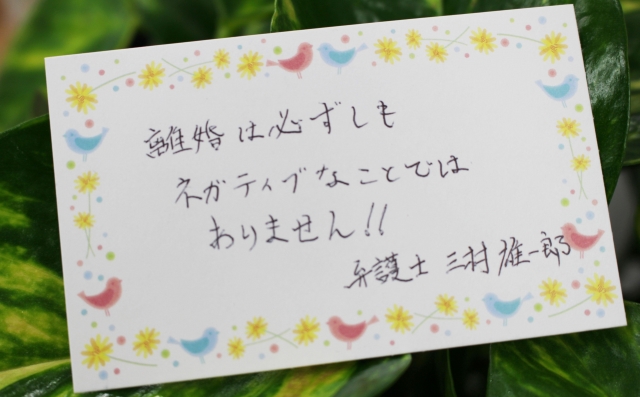 離婚は必ずしも
ネガティブなことでは
ありません!!
弁護士 三村雄一郎